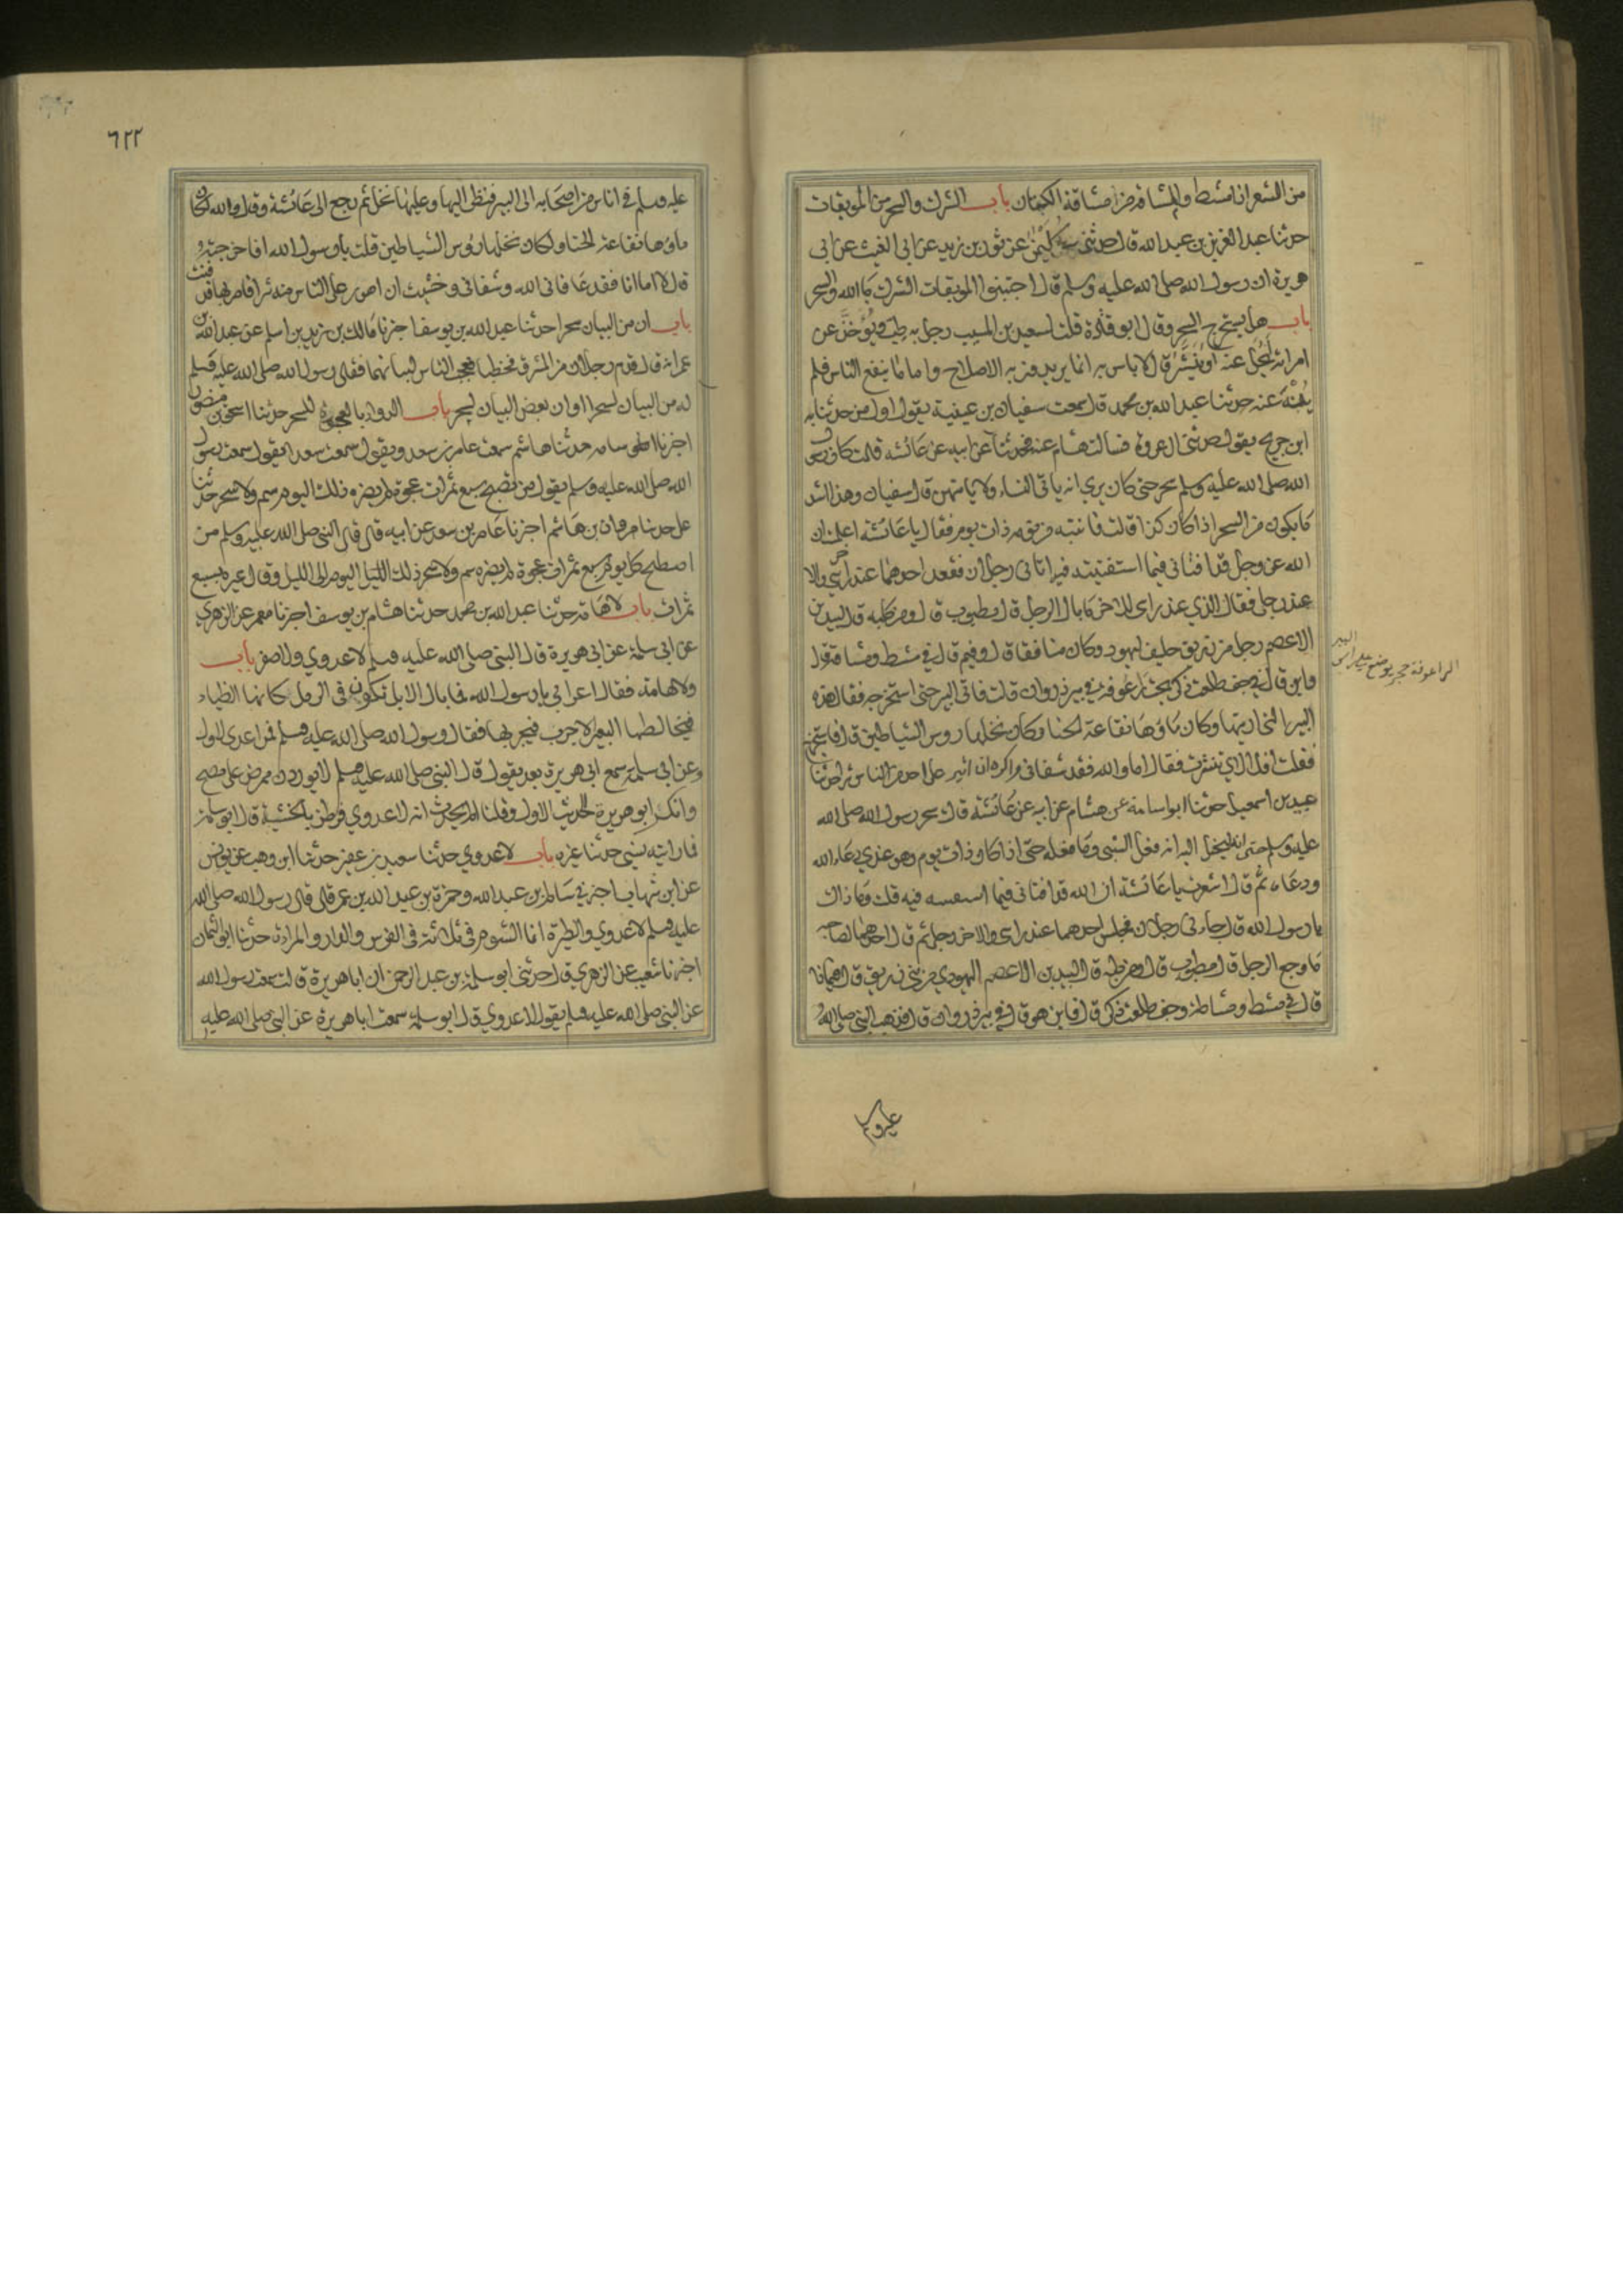 من الشعر اذا مشط والمشاقة من مشاقة الكتان باب الشرك والسحر من الموبقات
حدثنا عبد العزيز بن عبد الله قال حدثني سليمن عن ثور بن زيد عن ابي الغيث عن ابي
هريرة ان رسول الله صلى الله عليه وسلم قال اجتنبوا الموبقات الشرك بالله والسحر
باب هل يستخرج السحر وقال ابو قتادة قلت لسعيد بن المسيب رجل به طب ويؤخذ عن
امراته ايحل عنه او ينشر قال لا باس به انما يريدون به الاصلاح واما ما ينفع الناس فلم
ينه عنه حدثنا عبد الله بن محمد قال سمعت سفيان بن عيينة يقول اول من حدثنا به
ابن جريج يقول حدثني ال عروة فسالت هشام عنه فحدثنا عن ابيه عن عائشه قالت كان رسول
الله صلى الله عليه وسلم سحر حتى كان يرى انه ياتي النساء ولا ياتيهن قال سفيان وهذا اشد
ما يكون من السحر اذا كان كذا قالت فانتبه من نومه ذات يوم فقال يا عائشة اعلمت ان
الله عز وجل قد افتاني فيما استفتيته فيه اتاني رجلان فقعد احدهما عند راسي والاخر
عند رجلي فقال الذي عند راسي للاخر ما بال الرجل قال مطبوب قال ومن طبه قال لبيد بن
الاعصم رجل من زريق حليف ليهود وكان منافقا قال وفيم قال في مشط ومشاقة قال
واين قال في جف طلعة ذكر تحت رعوفة في بير ذروان قالت فاتى البير حتى استخرجه فقال هذه
البير التي اريتها وكان ماوها نقاعة الحنا وكان نخلها روس الشياطين قال فاستخرج
فقلت افلا اي تنشرت فقال اما والله فقد شفاني واكره ان اثير على احد من الناس شرا حدثنا
عبيد بن اسمعيل حدثنا ابو اسامة عن هشام عن ابيه عن عائشة قالت سحر رسول الله صلى الله
عليه وسلم حتى انه ليخيل اليه انه فعل الشي وما فعله حتى اذا كان ذات يوم وهو عندي دعا الله
ودعاه ثم قال اشعرت يا عائشة ان الله قد افتاني فيما استفتيته فيه قلت وما ذاك
يا رسول الله قال جاءني رجلان فجلس احدهما عند راسي والاخر عند رجلي ثم قال احدهما لصاحبه
ما وجع الرجل قال مطبوب قال ومن طبه قال لبيد بن الاعصم اليهودي من بني زريق قال فيماذا
قال في مشط ومشاطة وجف طلعة ذكر قال فاين هو قال في بير ذروان قال فذهب النبي صلى الله
الراعوفة حجر يوضع على راس البير
عليه وسلم
٦٢٢
عليه وسلم في اناس من اصحابه الى البير فنظر اليها وعليها نخل ثم رجع الى عائشة وقال والله لكان
ماؤها نقاعة الحنا ولكان نخلها رؤس الشياطين قلت يا رسول الله افاخرجته
قال لا اما انا فقد عافاني الله وشفاني وخشيت ان اصور على الناس منه شرا فامر بها فدفنت
باب ان من البيان سحرا حدثنا عبد الله بن يوسف اخبرنا مالك بن زيد بن اسلم عن عبد الله بن
عمر انه قال قدم رجلان من المشرق فخطبا فعجب الناس لبيانهما فقال رسول الله صلى الله عليه وسلم
ان من البيان لسحرا او ان بعض البيان لسحر باب الدواء بالعجوة للسحر حدثنا اسحق بن منصور
اخبرنا ابو اسامه حدثنا هاشم سمعت عامر بن سعد ويقول سمعت سعدا يقول سمعت رسول
الله صلى الله عليه وسلم يقول من تصبح سبع تمرات عجوة لم يضره ذلك اليوم سم ولا سحر حدثنا
علي حدثنا مروان بن هاشم اخبرنا عامر بن سعد عن ابيه قال قال النبي صلى الله عليه وسلم من
اصطبح كل يوم سبع تمرات عجوة لم يضره سم ولا سحر ذلك الليل اليوم الى الليل وقال غيره سبع
تمرات باب لا هامة حدثنا عبد الله بن محمد حدثنا هشام بن يوسف اخبرنا معمر عن الزهري
عن ابي سلمة عن ابي هريرة قال النبي صلى الله عليه وسلم لا عدوي ولا صفر باب
ولا هامة فقال اعرابي يا رسول الله فما بال الابل تكون في الرمل كانها الظباء
فيخالطها البعير الاجرب فيجربها فقال رسول الله صلى الله عليه وسلم فمن اعدى الاول
وعن ابي سلمة سمع ابي هريرة بعد يقول قال النبي صلى الله عليه وسلم لا يوردن ممرض على مصح
وانكر ابو هريرة الحديث الاول وقلنا الم تحدث انه لا عدوي فرطن بالحبشية قال ابو سلمة
فما رايته نسي حديثا غيره باب لا عدوي حدثنا سعيد بن عفير حدثنا ابن وهب عن يونس
عن ابن شهاب اخبرني سالم بن عبد الله وحمزة بن عبد الله بن عمر قال قال رسول الله صلى الله
عليه وسلم لا عدوي والطيرة انما الشوم في ثلاثة في الفرس والدار والمراة حدثنا ابو اليمان
اخبرنا شعيب عن الزهري قال حدثني ابو سلمة بن عبد الرحمن ان ابا هريرة قال سمعت رسول الله
عن النبي صلى الله عليه وسلم يقول لا عدوي قال ابو سلمة سمعت ابا هريرة عن النبي صلى الله عليه